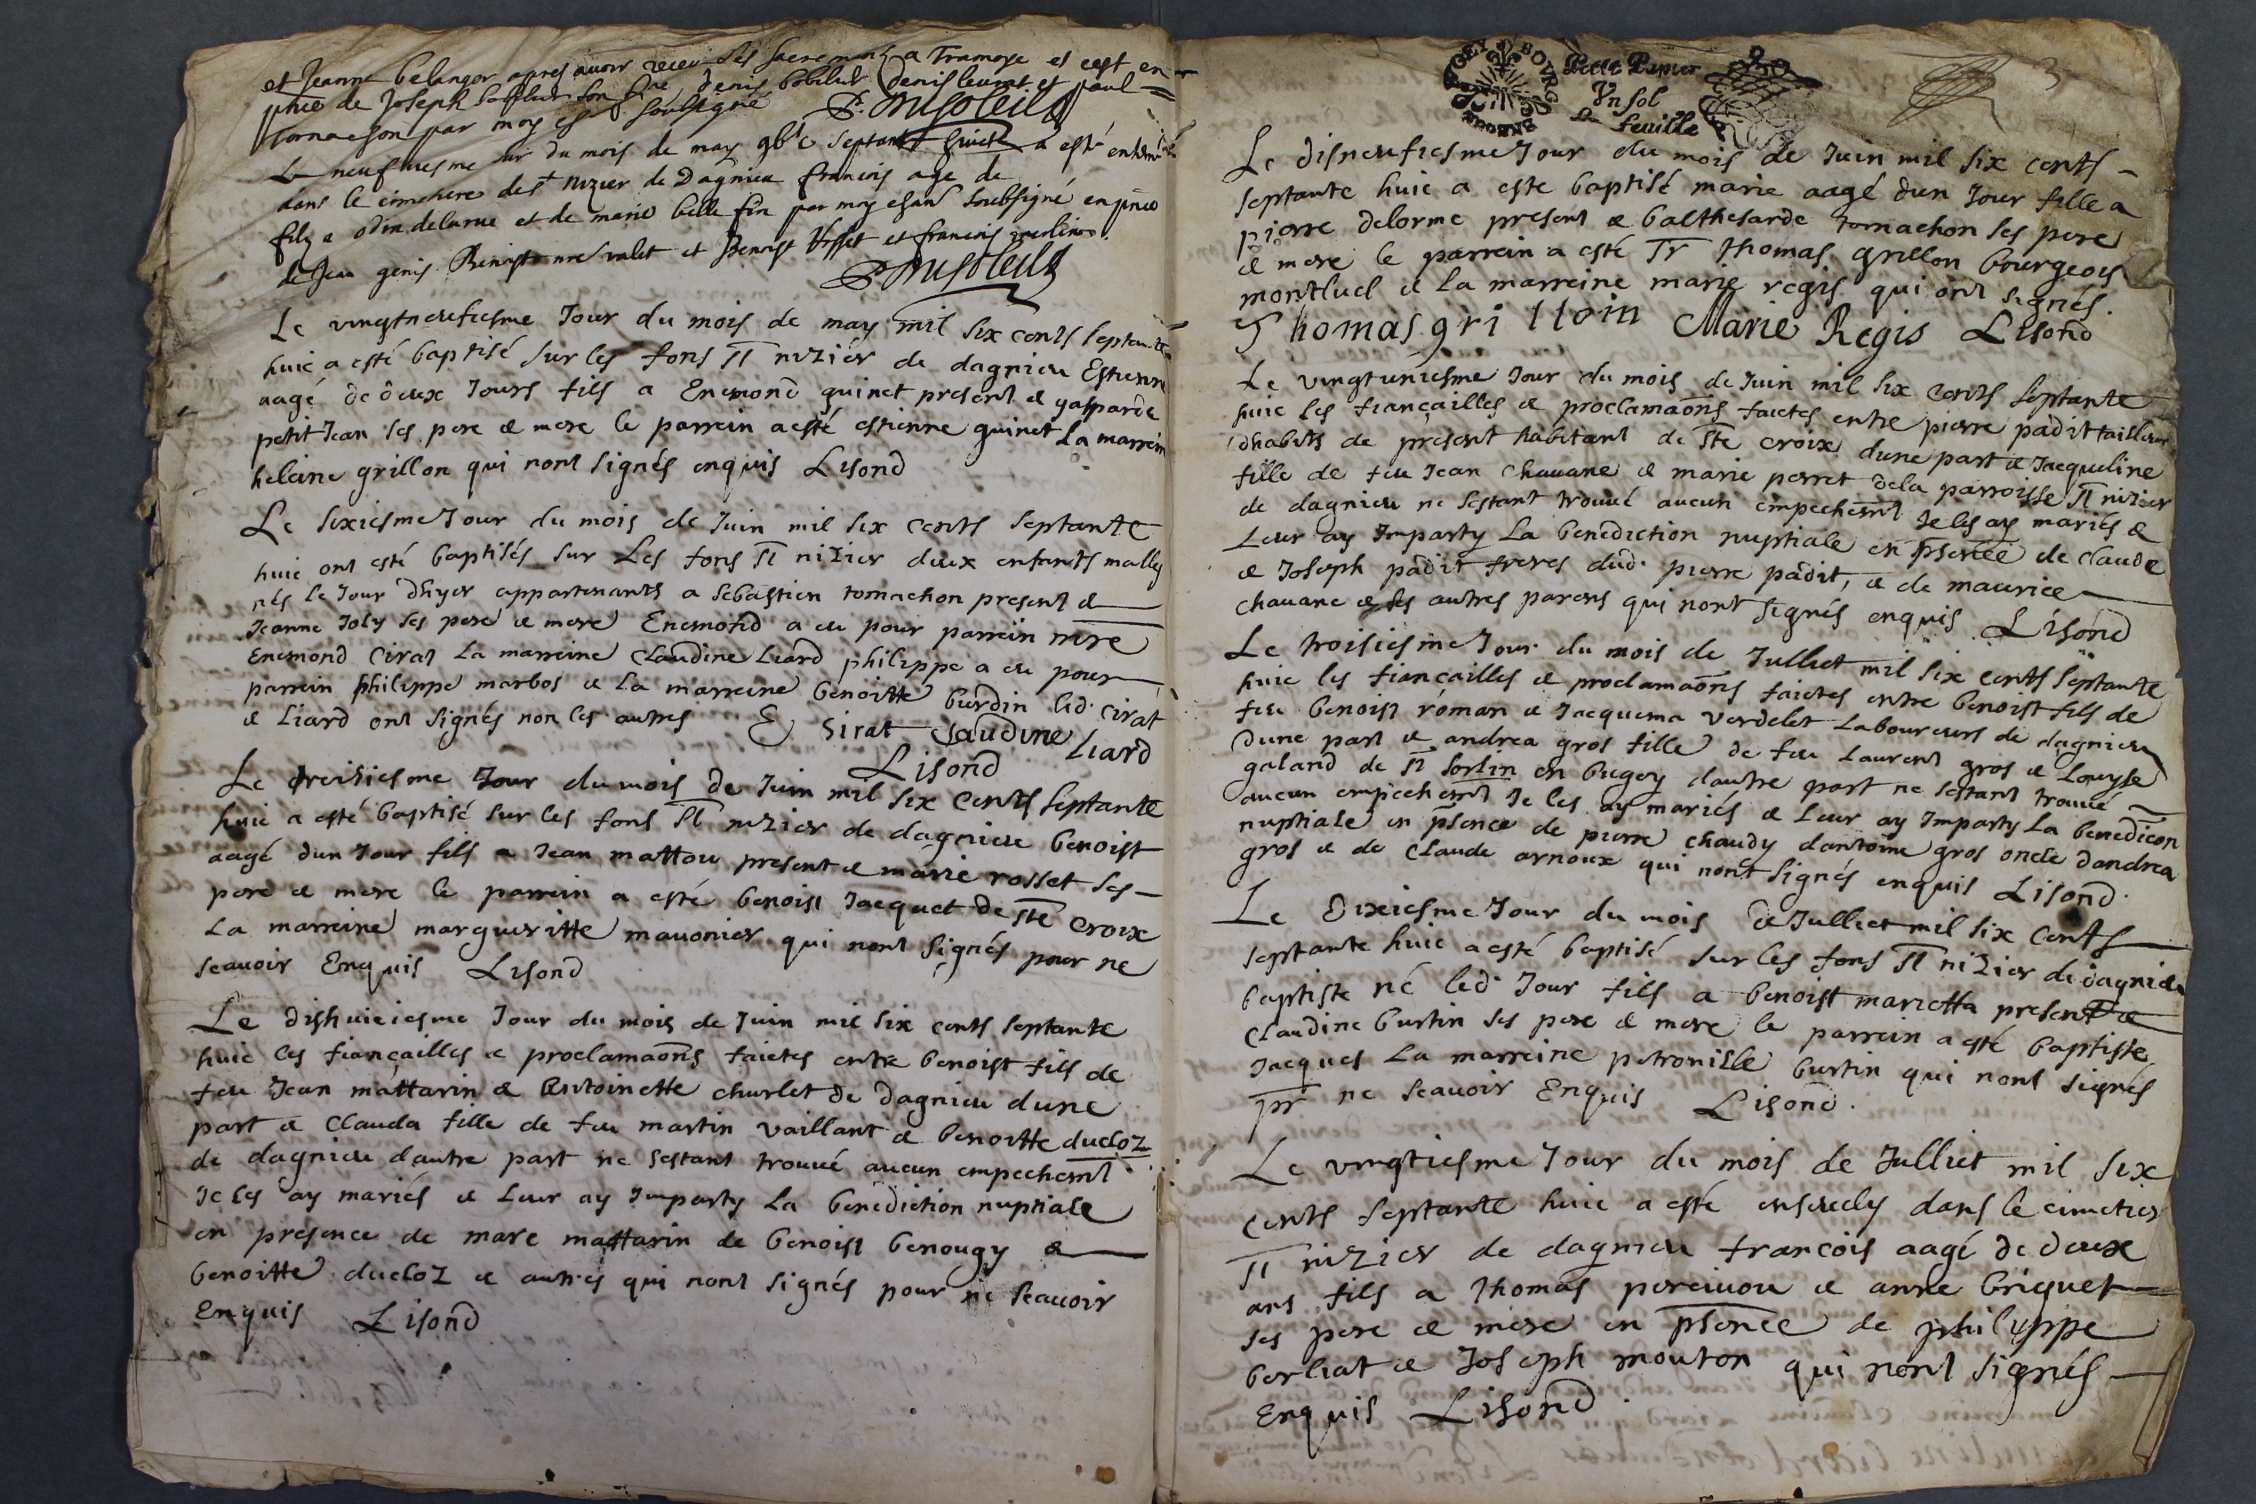 et Jeanne belanger apres avoir receu les sacremens a Tramoye et cest en
pnce de Joseph son fre denis denis leurat et paul
Tornachon par moy soubsigné
Le neufviesme jour du mois de may septante huict a esté enterré
dans le cimetiere de st nizier de Dagnieu francois age de
filz a odin delarue et de marie belle fin par moy soubsigné en pnce
de Jean genis Benoist valet et Benoist et francois
Le vingtneufiesme Jour du mois de may mil six cents septante
huic a esté baptisé sur les fons st nizier de dagnieu Estienne
aagé de deux Jours fils a Enemond guinet present & gasparde
petit Jean ses pere & mere le parrein a esté estienne guinet La marrein
heleine grillon qui nont signés enquis Lisond
Le sixiesme Jour du mois de Juin mil six cents septante
huic ont esté baptisés sur Les fons st nizier deux enfants malles
nés le Jour dhyer appartenants a sebastien tornachon present &
Jeanne Joly ses pere & mere Enemond a eu pour parrein mre
Enemond Cirat La marreine Claudine Liard philippe a eu pour
parrein philippe marbos & la marreine benoitte burdin led. cirat
& Liard ont signés non les autres E Sirat Claudine
Liard
Lisond
Le treiziesme Jour du mois de Juin mil six cents septante
huic a esté baptisé sur les fons st nizier de dagnieu benoist
aagé dun Jour fils a Jean mattou present & marie rosset ses
pere & mere le parrein a esté benoist Jacquet de ste croix
La marreine margueritte mavonier qui nont signés pour ne
scavoir Enquis Lisond
Le dishuiciesme Jour du mois de Juin mil six cents septante
huic les fiançailles & proclamaons faictes entre benoist fils de
feu Jean mattarin & Antoinette churlet de dagnieu dune
part & Clauda fille de feu martin vaillant & benoitte ducloz
de dagnieu dautre part ne sestant trouvé aucun empechemt
Je les ay mariés & Leur ay Imparty La benediction nuptiale
en presence de marc mattarin de benoist benougy &
benoitte ducloz & autres qui nont signés pour ne scavoir
Enquis Lisond
BOURG
Petit Papier
Un sol
La feuille
3
Le disneufiesme Jour du mois de Juin mil six cents
septante huic a esté baptisé marie aagé dun Jour fille a
pierre delorme present & balthesarde tornachon ses pere
& mere le parrein a esté sr thomas grillon bourgeois
montluel & La marreine marie regis qui ont signés.
Thomas grilloin Marie Regis Lisond
Le vingtuniesme Jour du mois de Juin mil six cents septante
huic les fiançailles & proclamaons faictes entre pierre padit tailleur
dhabits de present habitant de ste croix dune part & Jacqueline
fille de feu Jean Chavane & marie perret dela parroisse st nizier
de dagnieu ne sestant trouvé aucun empechemt Je les ay mariés &
Leur ay Imparty La benediction nuptiale en psence de claude
& Joseph padit freres dud. pierre padit, & de maurice
chavane & ses autres parens qui nont signés enquis Lisond
Le troisiesme Jour du mois de Julliet mil six cents septante
huic les fiançailles & proclamaons faictes entre benoist fils de
feu benoist roman & Jacquema verdelet Laboureurs de dagnieu
dune part & andrea gros fille de feu Laurent gros & Louyse
galand de st sorlin en bugey dautre part ne sestant trouvé
aucun empechemt Je les ay mariés & Leur ay Imparty La benedicon
nuptiale en psence de pierre chaudy dantoine gros oncle dandrea
gros & de Claude arnoux qui nont signés enquis Lisond.
Le dixiesme Jour du mois de Julliet mil six cents
septante huic a esté baptisé sur les fons st nizier de dagnieu
baptiste né led. Jour fils a benoist marietta present &
Claudine burtin ses pere & mere le parrein a esté baptiste
Jacques La marreine petronille burtin qui nont signés
pr ne scavoir Enquis Lisond.
Le vingtiesme Jour du mois de Julliet mil six
cents septante huic a esté ensevely dans le cimetier
st nizier de dagnieu francois aagé de deux
ans fils a thomas percivou & anne briquet
ses pere & mere en psence de philippe
berliat & Joseph mouton qui nont signés
Enquis Lisond.